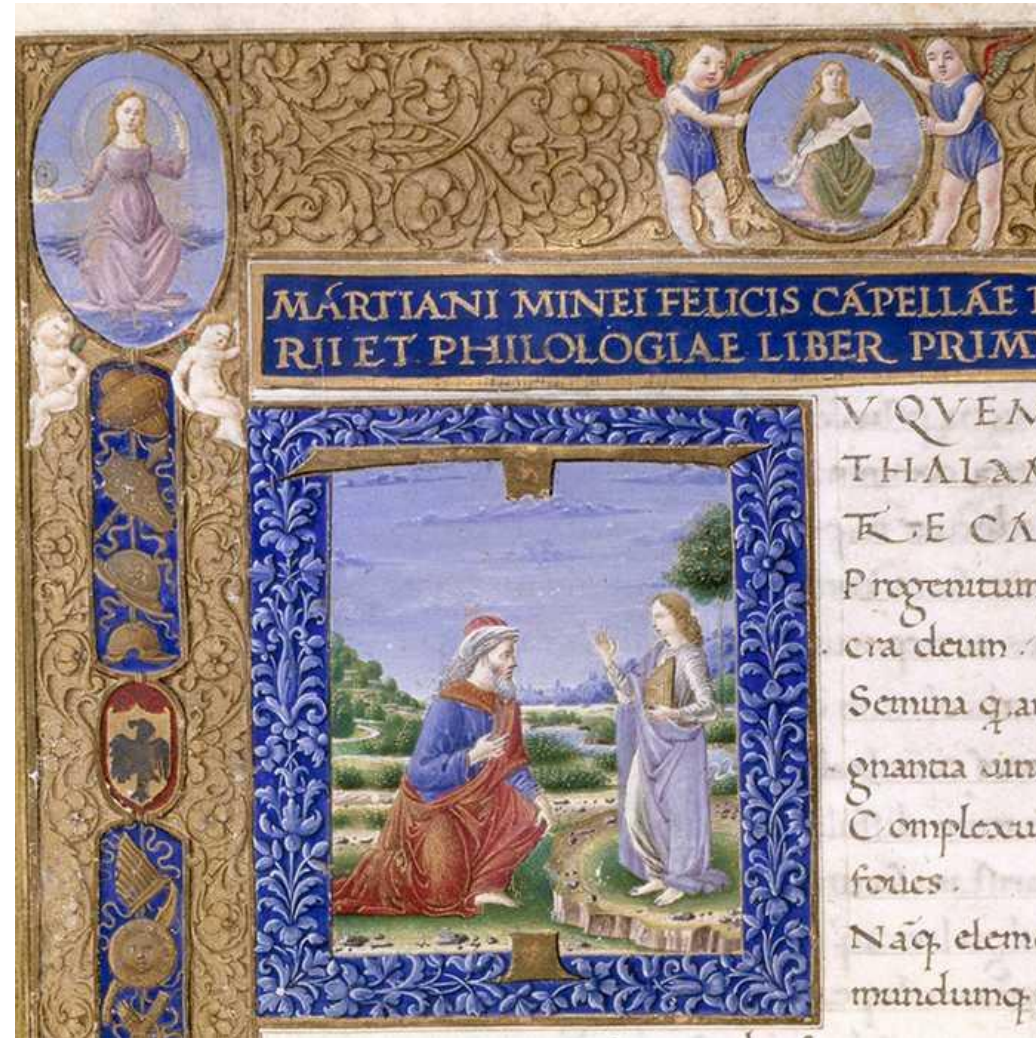 MARTIANI MINEI FELICIS CAPELLAE
RII ET PHILOLOGIAE LIBER PRIM
T
V QVEM
THALAM
E CA
Progenitum
cra deum .
Semina q
gnantia
Complexu
foues .
Nāq elem
mundumq